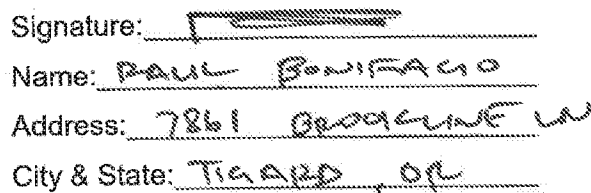 Signature:
Name: PAUL BONIFACIO
Address: 7861 BROOKLINE LN
City & State: TIGARD, OR